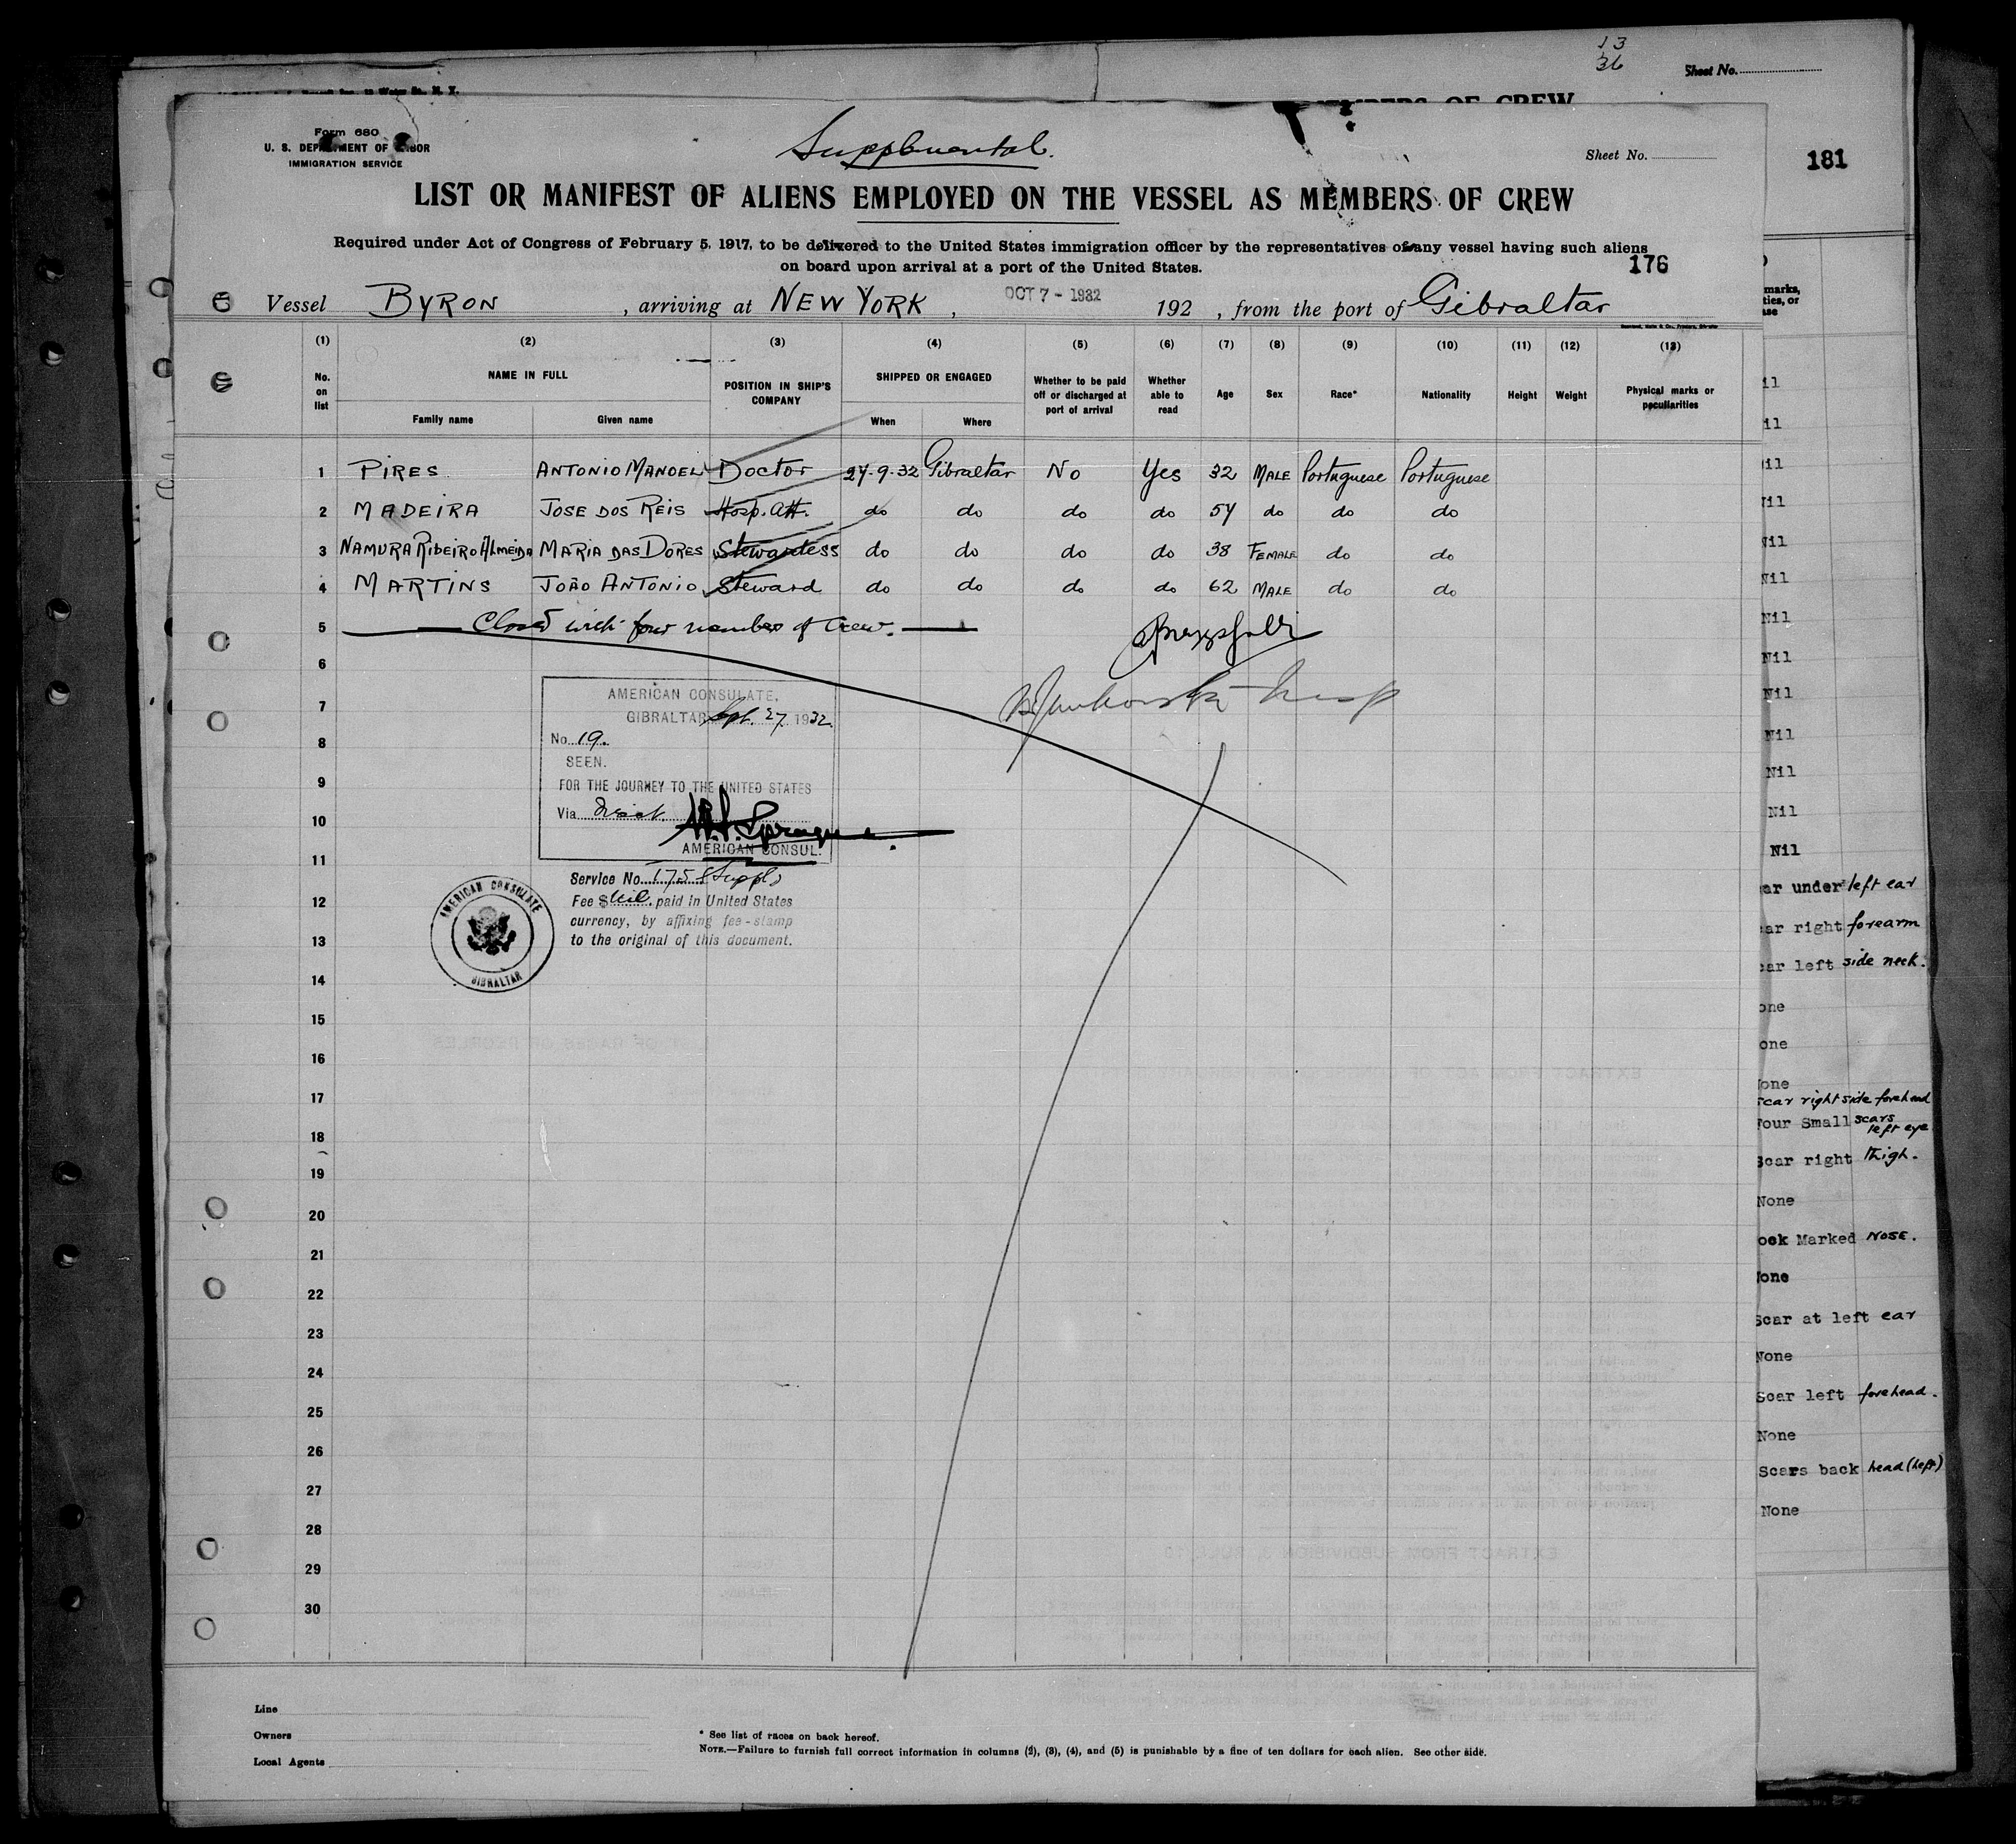 13
36
Sheet No.
MEMBERS OF CREW
181
Form 680
U. S. DEPARTMENT OF LABOR
IMMIGRATION SERVICE
Supplemental.
Sheet No.
LIST OR MANIFEST OF ALIENS EMPLOYED ON THE VESSEL AS MEMBERS OF CREW
Required under Act of Congress of February 5, 1917, to be delivered to the United States immigration officer by the representatives of any vessel having such aliens
on board upon arrival at a port of the United States.
176
Vessel BYRON, arriving at NEW YORK, OCT 7 - 1932 192 , from the port of Gibraltar
(1) (2) (3) (4) (5) (6) (7) (8) (9) (10) (11) (12) (13)
No. on list NAME IN FULL POSITION IN SHIP'S COMPANY SHIPPED OR ENGAGED Whether to be paid off or discharged at port of arrival Whether able to read Age Sex Race* Nationality Height Weight Physical marks or peculiarities
Family name Given name When Where
1 PIRES ANTONIO MANOEL Doctor 27-9-32 Gibraltar No Yes 32 MALE Portuguese Portuguese
2 MADEIRA JOSE DOS REIS Hosp. Att. do do do do 54 do do do
3 NAMURA RIBEIRO ALMEIDA MARIA DAS DORES Stewardess do do do do 38 FEMALE do do
4 MARTINS JOÃO ANTONIO Steward do do do do 62 MALE do do
5 Closed with four member of Crew.
6
7
8
9
10
11
12
13
14
15
16
17
18
19
20
21
22
23
24
25
26
27
28
29
30
AMERICAN CONSULATE,
GIBRALTAR Sept. 27, 1932.
No. 19.
SEEN.
FOR THE JOURNEY TO THE UNITED STATES
Via
Sprague
AMERICAN CONSUL.
Service No. 1758 Suppl
Fee $ Nil. paid in United States
currency, by affixing fee-stamp
to the original of this document.
AMERICAN CONSULATE
GIBRALTAR
Line
Owners
Local Agents
* See list of races on back hereof.
NOTE.—Failure to furnish full correct information in columns (2), (3), (4), and (5) is punishable by a fine of ten dollars for each alien. See other side.
marks,
ties, or
ase
il
il
Nil
Nil
Nil
Nil
Nil
Nil
Nil
Nil
Nil
Nil
Nil
ar under left ear
ar right forearm
ar left side neck.
one
one
one
Scar right side forehead
Four Small scars
left eye
Scar right Thigh.
None
ock Marked NOSE.
None
Scar at left ear
None
Scar left forehead.
None
Scars back head (left)
None